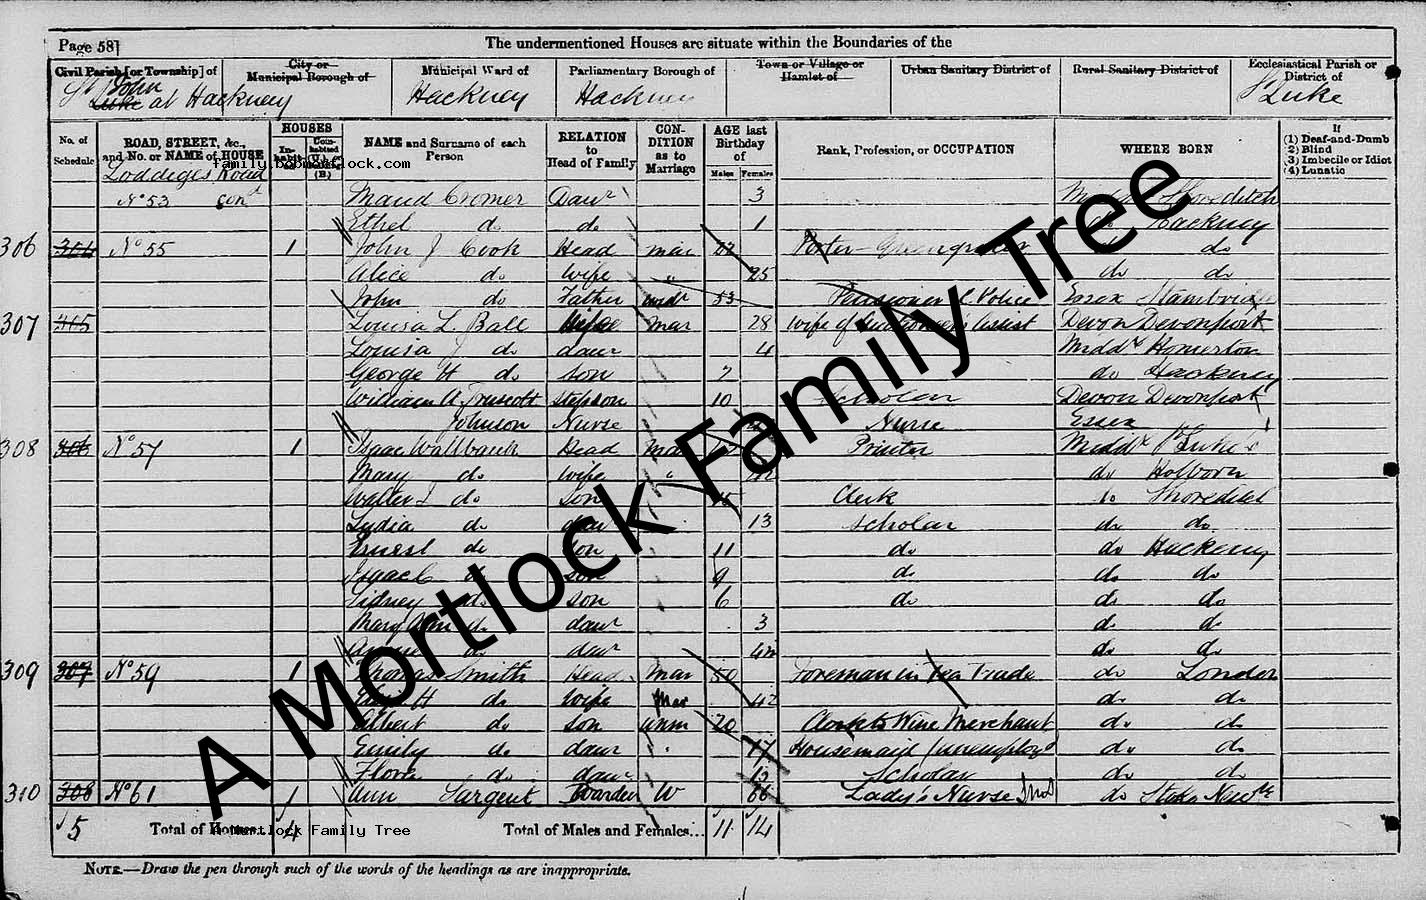 Page 58]
The undermentioned Houses are situate within the Boundaries of the
Civil Parish [or Township] of
City or Municipal Borough of
Municipal Ward of
Parliamentary Borough of
Town or Village or Hamlet of
Urban Sanitary District of
Rural Sanitary District of
Ecclesiastical Parish or District of
St John Luke at Hackney
Hackney
Hackney
St Luke
No. of Schedule
ROAD, STREET, &c., and No. or NAME of HOUSE
HOUSES
NAME and Surname of each Person
RELATION to Head of Family
CONDITION as to Marriage
AGE last Birthday of
Males
Females
Rank, Profession, or OCCUPATION
WHERE BORN
If
(1) Deaf-and-Dumb
(2) Blind
(3) Imbecile or Idiot
(4) Lunatic
family.bobmortlock.com
Loddiges Road
No 53 cont Maud Cromer Daur 3 Shoreditch
Ethel do do 1 do Hackney
306 No 55 1 John J Cook Head mar Porter Greengrocer do do
Alice do Wife " 25 do do
John do Father widr 53 Pensioner Police Essex Stambridge
307 305 Louisa L. Ball Wife Mar 28 Wife of Devon Devonport
Louisa J do daur 4 Middx Homerton
George H do son 2 do Hackney
William A Truscott Stepson 10 Scholar Devon Devonport
Johnson Nurse Nurse Essex
308 306 No 57 1 Isaac Wallbank Head Mar Printer Middx St Luke's
Mary do Wife " 42 do Holborn
Walter J do son Clerk do Shoreditch
Lydia do daur 13 Scholar do do
Ernest do son 11 do do Hackney
Isaac C do son 9 do do do
Sidney do son 6 do do do
Mary Ann do daur 3 do do
Annie do daur do do
309 307 No 59 1 Thomas Smith Head Mar 50 Foreman in Tea Trade do London
H do Wife Mar 42 do do
Albert do son unm 20 Clerk to Wine Merchant do do
Emily do daur 17 Housemaid (unemployd do do
Flora do daur Scholar do do
310 308 No 61 1 Ann Sargent Boarder W 66 Lady's Nurse do Stoke Newn
5 Total of Houses... 4 Total of Males and Females... 11 14
A Mortlock Family Tree
NOTE.—Draw the pen through such of the words of the headings as are inappropriate.
A Mortlock Family Tree